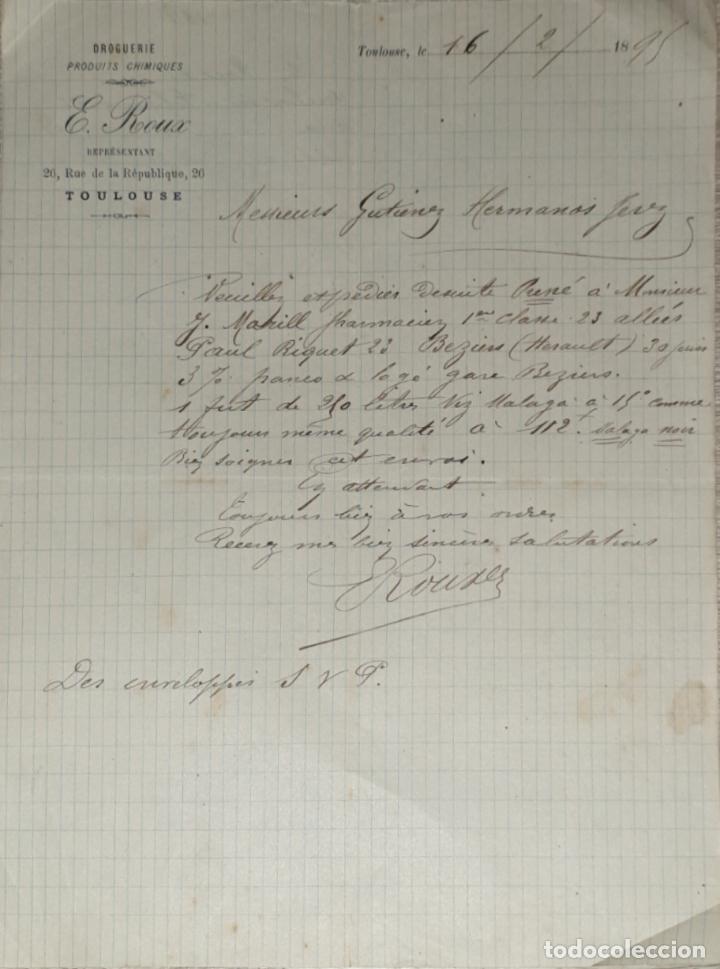 DROGUERIE
PRODUITS CHIMIQUES
E. Roux
REPRÉSENTANT
26, Rue de la République, 26
TOULOUSE
Toulouse, le 16/2/1895
Messieurs Gutierrez Hermanos Jerez
Veuillez expédier desuite à Monsieur
J. Pharmacien 1ere classe 23 allées
Paul Riquet 23 Beziers (Herault) 30 jours
3% franco & logé gare Beziers.
1 fut de 250 litres Vin Malaga à 15° comme
toujours même qualité à 112 f. Malaga noir
Bien soigner cet envoi.
En attendant
toujours bien à vos ordres
Recevez mes bien sincères salutations
E Roux
Des enveloppes S V P.
todocoleccion
todocoleccion.net